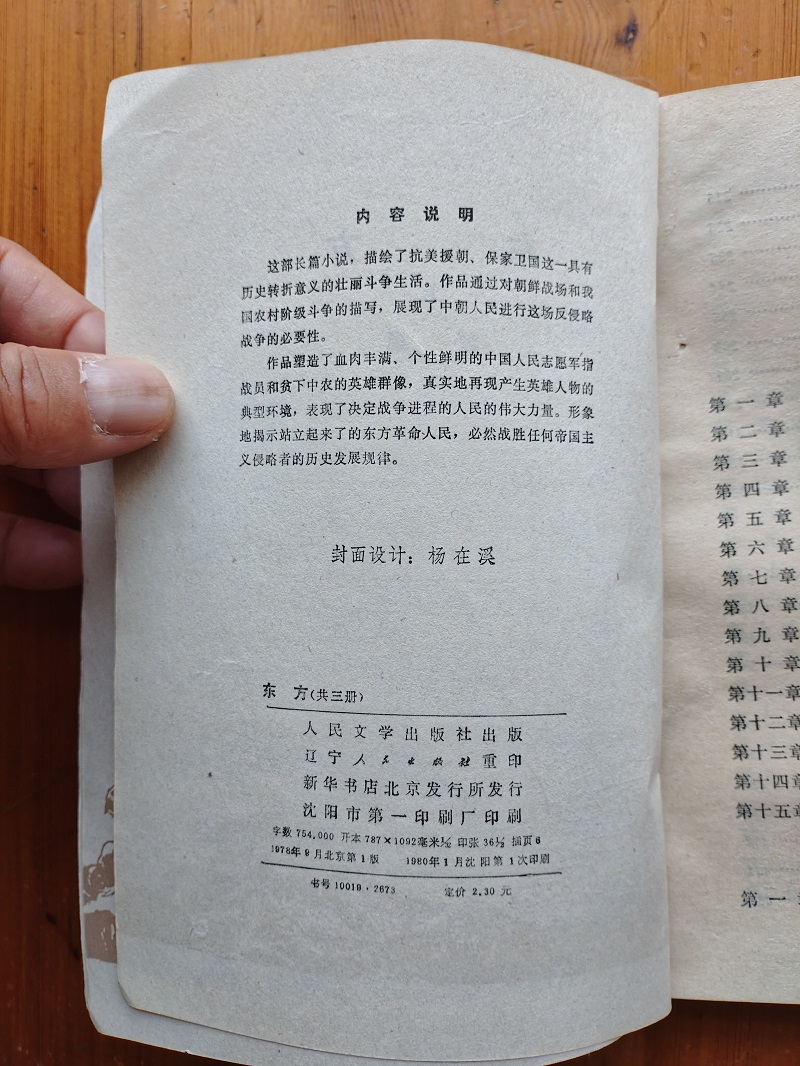 内容说明
这部长篇小说，描绘了抗美援朝、保家卫国这一具有
历史转折意义的壮丽斗争生活。作品通过对朝鲜战场和我
国农村阶级斗争的描写，展现了中朝人民进行这场反侵略
战争的必要性。
作品塑造了血肉丰满、个性鲜明的中国人民志愿军指
战员和贫下中农的英雄群像，真实地再现产生英雄人物的
典型环境，表现了决定战争进程的人民的伟大力量。形象
地揭示站立起来了的东方革命人民，必然战胜任何帝国主
义侵略者的历史发展规律。
封面设计：杨在溪
东方（共三册）
人民文学出版社出版
辽宁人民出版社重印
新华书店北京发行所发行
沈阳市第一印刷厂印刷
字数 754,000 开本 787×1092毫米 1/32 印张 36 1/2 插页 6
1978年9月北京第1版 1980年1月沈阳第1次印刷
书号 10019·2673 定价 2.30 元
第一章
第二章
第三章
第四章
第五章
第六章
第七章
第八章
第九章
第十章
第十一章
第十二章
第十三章
第十四章
第十五章
第一